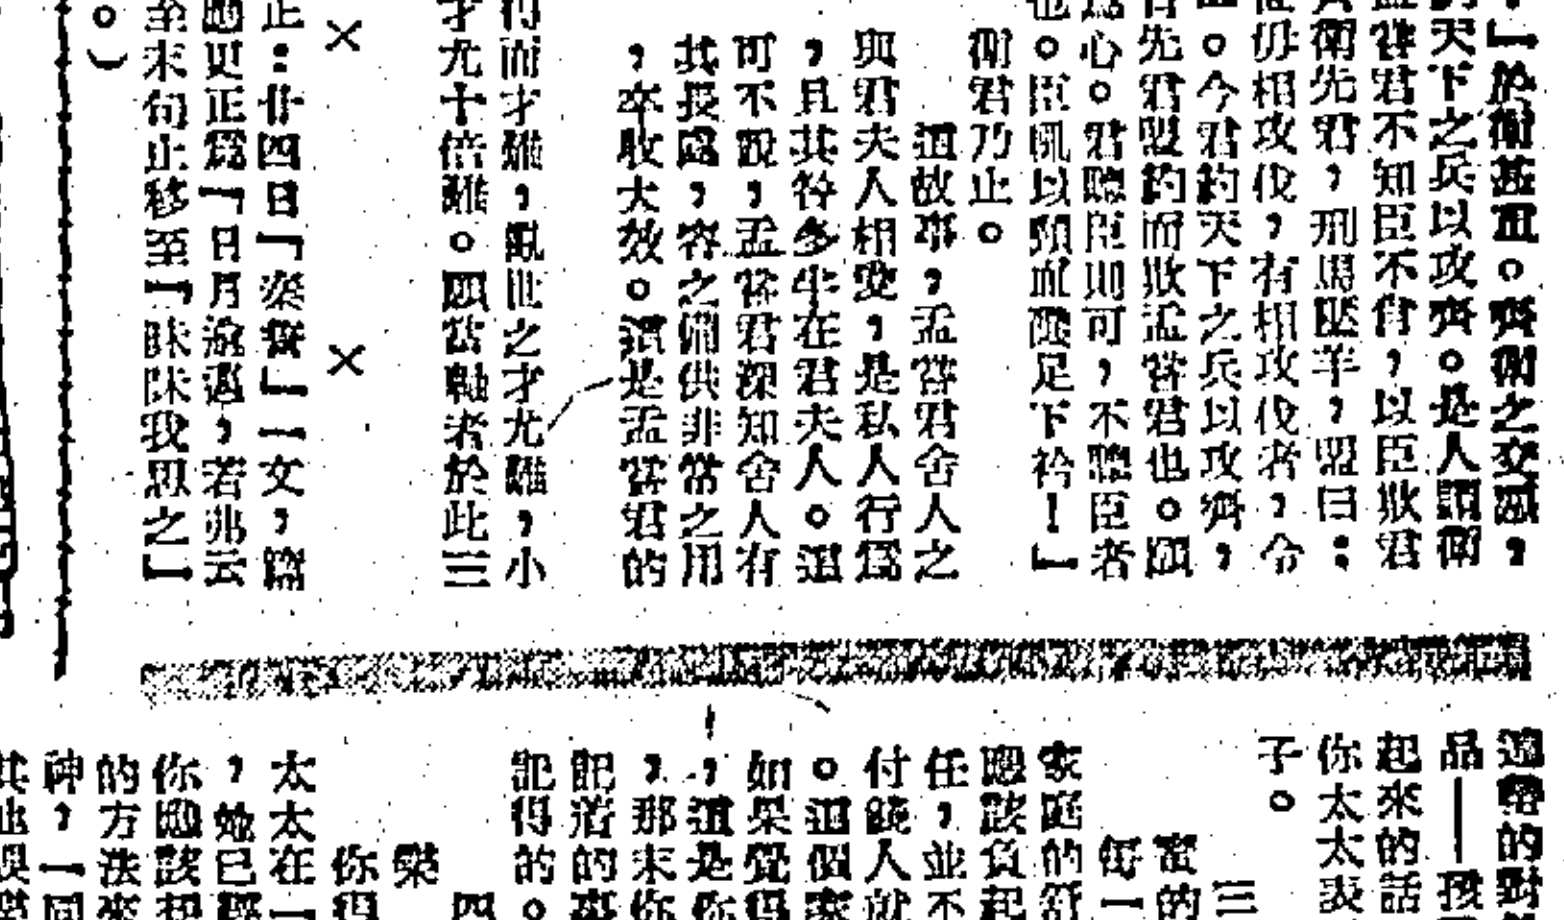 」於衛甚重。齊衛之交惡，
天下之兵以攻齊。是人謂衛
孟嘗君不知臣不肖，以臣欺君
齊衛先君，刑馬壓羊，盟曰：
毋相攻伐，有相攻伐者，令
。今君約天下之兵以攻齊，
先君盟約而欺孟嘗君也。願
心。君聽臣則可，不聽臣者
也。臣輒以頸血醆足下衿！」
衛君乃止。
這故事，孟嘗君舍人之
與君夫人相愛，是私人行爲
，且其咎多半在君夫人。這
可不說，孟嘗君深知舍人有
其長處，容之備供非常之用
，卒收大效。這是孟嘗君的
得而才難，亂世之才尤難，小
才尤十倍難。願當軸者於此三
×　×
正：廿四日「秦誓」一文，篇
應更正爲「日月逾邁，若弗云
至末句止移至「昧昧我思之」
。）
的對
品——孩
起來的話
你太太表
子。
三
蜜的
每一
家庭的
應該負起
任，並不
付饒人就
。這個家
如果覺得
，這是你
，那末你
記着的事
記得的。
四
樂
你得
太太在一
，她已經
你應該把
的方法來
神，一同
其他